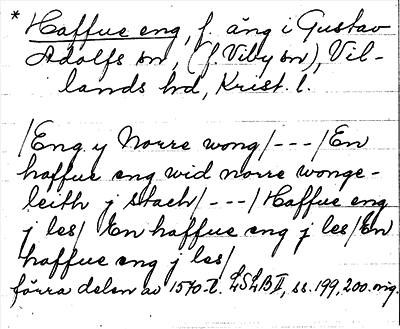 * Haffue eng, f. äng i Gustav
Adolfs sn, (f. Viby sn), Vil-
lands hd, Krist. l.
/Eng y Norre wong/---/En
haffue eng wid norre wonge-
leith j stach/---/Haffue eng
j les/ En haffue eng j les/En
haffue eng j les/
förra delen av 1570-t. LSLB II, ss. 199, 200. orig.